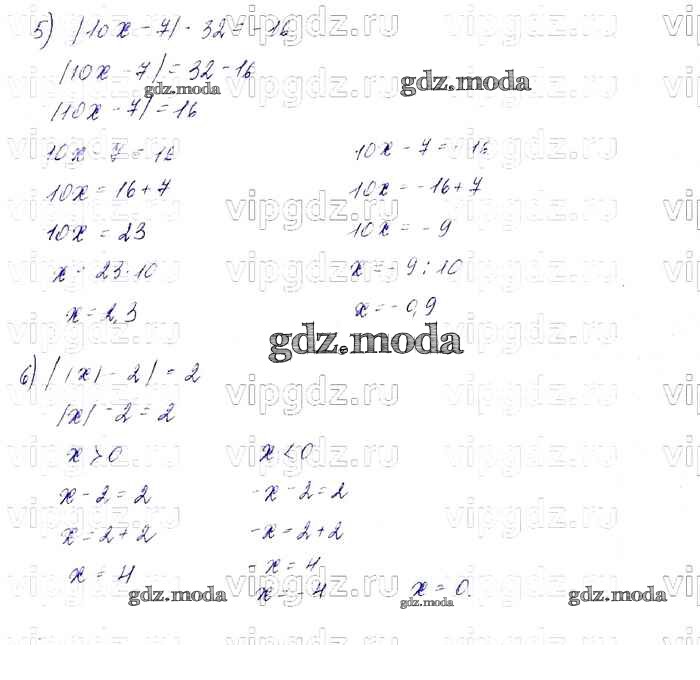 5) |10x - 7| - 32 = -16
|10x - 7| = 32 - 16
gdz.moda
gdz.moda
|10x - 7| = 16
10x - 7 = 16 10x - 7 = -16
10x = 16 + 7 10x = -16 + 7
10x = 23 10x = -9
x = 23 : 10 x = -9 : 10
x = 2,3 x = -0,9
gdz.moda
6) ||x| - 2| = 2
|x| - 2 = 2
x > 0 x < 0
x - 2 = 2 -x - 2 = 2
x = 2 + 2 -x = 2 + 2
x = 4 -x = 4
x = -4 x = 0.
gdz.moda gdz.moda gdz.moda
vipgdz.ru